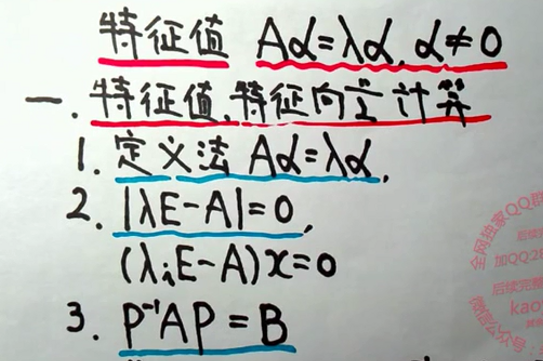 特征值 Aα=λα, α≠0
一. 特征值、特征向量计算
1. 定义法 Aα=λα,
2. |λE-A|=0,
(λᵢE-A)x=0
3. P⁻¹AP=B
全网独家QQ群
后续
加QQ28
后续完整
kao
微信公众号: